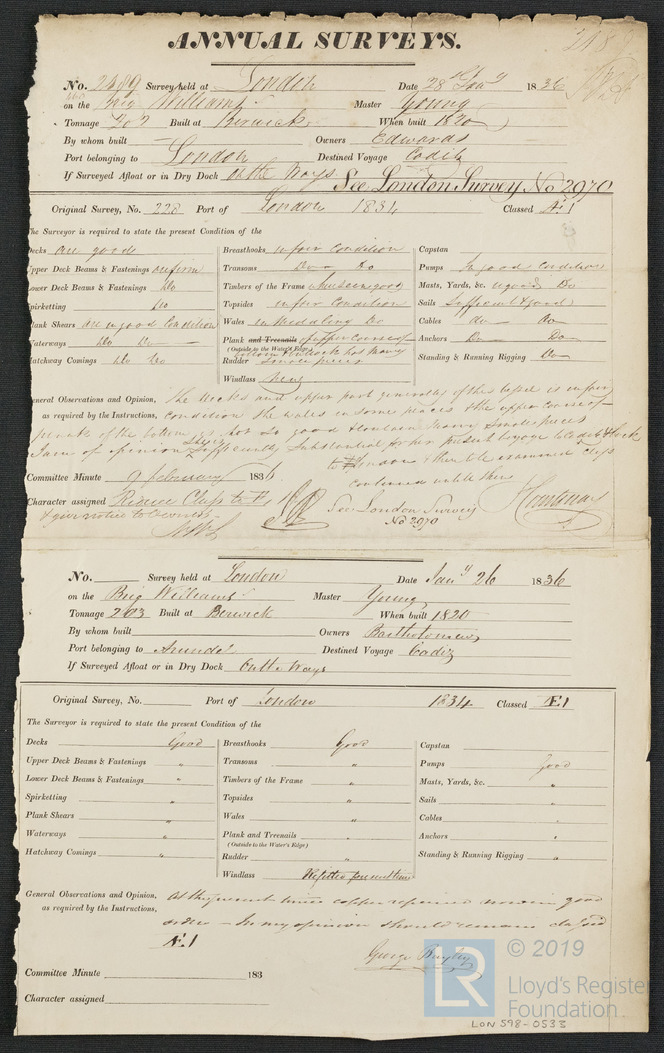 ANNUAL SURVEYS.
No. 2489 Survey held at London Date 28th Jany 1836
on the Brig Williams Master Young
Tonnage Built at Berwick When built 1820
By whom built Owners Edwards
Port belonging to London Destined Voyage Cadiz
If Surveyed Afloat or in Dry Dock On the Ways
See London Survey No 2970
Original Survey, No. 228 Port of London 1834 Classed Æ1
The Surveyor is required to state the present Condition of the
Decks are good
Upper Deck Beams & Fastenings are firm
Lower Deck Beams & Fastenings Do
Spirketting Do
Plank Shears are in good Condition
Waterways Do Do
Hatchway Comings Do Do
Breasthooks in fair Condition
Transoms Do Do
Timbers of the Frame when seen good
Topsides in fair Condition
Wales in middling Do
Plank and Treenails of upper course of
(Outside to the Water's Edge) bottom has many
Rudder small pieces
Windlass New
Capstan
Pumps In good Condition
Masts, Yards, &c. in good Do
Sails Sufficient & good
Cables do Do
Anchors Do Do
Standing & Running Rigging Do
General Observations and Opinion, The Decks and upper part generally of this Vessel is in fair
as required by the Instructions, condition the wales in some places & the upper course of
plank of the bottom is not so good & contain many small pieces
I am of opinion She is Sufficiently Substantial for her present Voyage to Cadiz & back
to London & then be examined & Class
continued until then
Committee Minute 9 February 1836
Character assigned Reduce Class to
& give notice to Owners
See London Survey
No 2970
No. Survey held at London Date Jany 26 1836
on the Brig Williams Master Young
Tonnage 203 Built at Berwick When built 1820
By whom built Owners Bartholomew
Port belonging to Arundel Destined Voyage Cadiz
If Surveyed Afloat or in Dry Dock On the Ways
Original Survey, No. Port of London 1834 Classed Æ1
The Surveyor is required to state the present Condition of the
Decks Good
Upper Deck Beams & Fastenings "
Lower Deck Beams & Fastenings "
Spirketting "
Plank Shears "
Waterways "
Hatchway Comings "
Breasthooks Good
Transoms "
Timbers of the Frame "
Topsides "
Wales "
Plank and Treenails "
(Outside to the Water's Edge)
Rudder "
Windlass Refitted present time
Capstan
Pumps good
Masts, Yards, &c. "
Sails "
Cables "
Anchors "
Standing & Running Rigging "
General Observations and Opinion, At the present time copper repaired now in good
as required by the Instructions, order - In my opinion should remain classed
Æ1
George Bayley
Committee Minute 183
Character assigned
LR © 2019
Lloyd's Register
Foundation
LON 598-0533